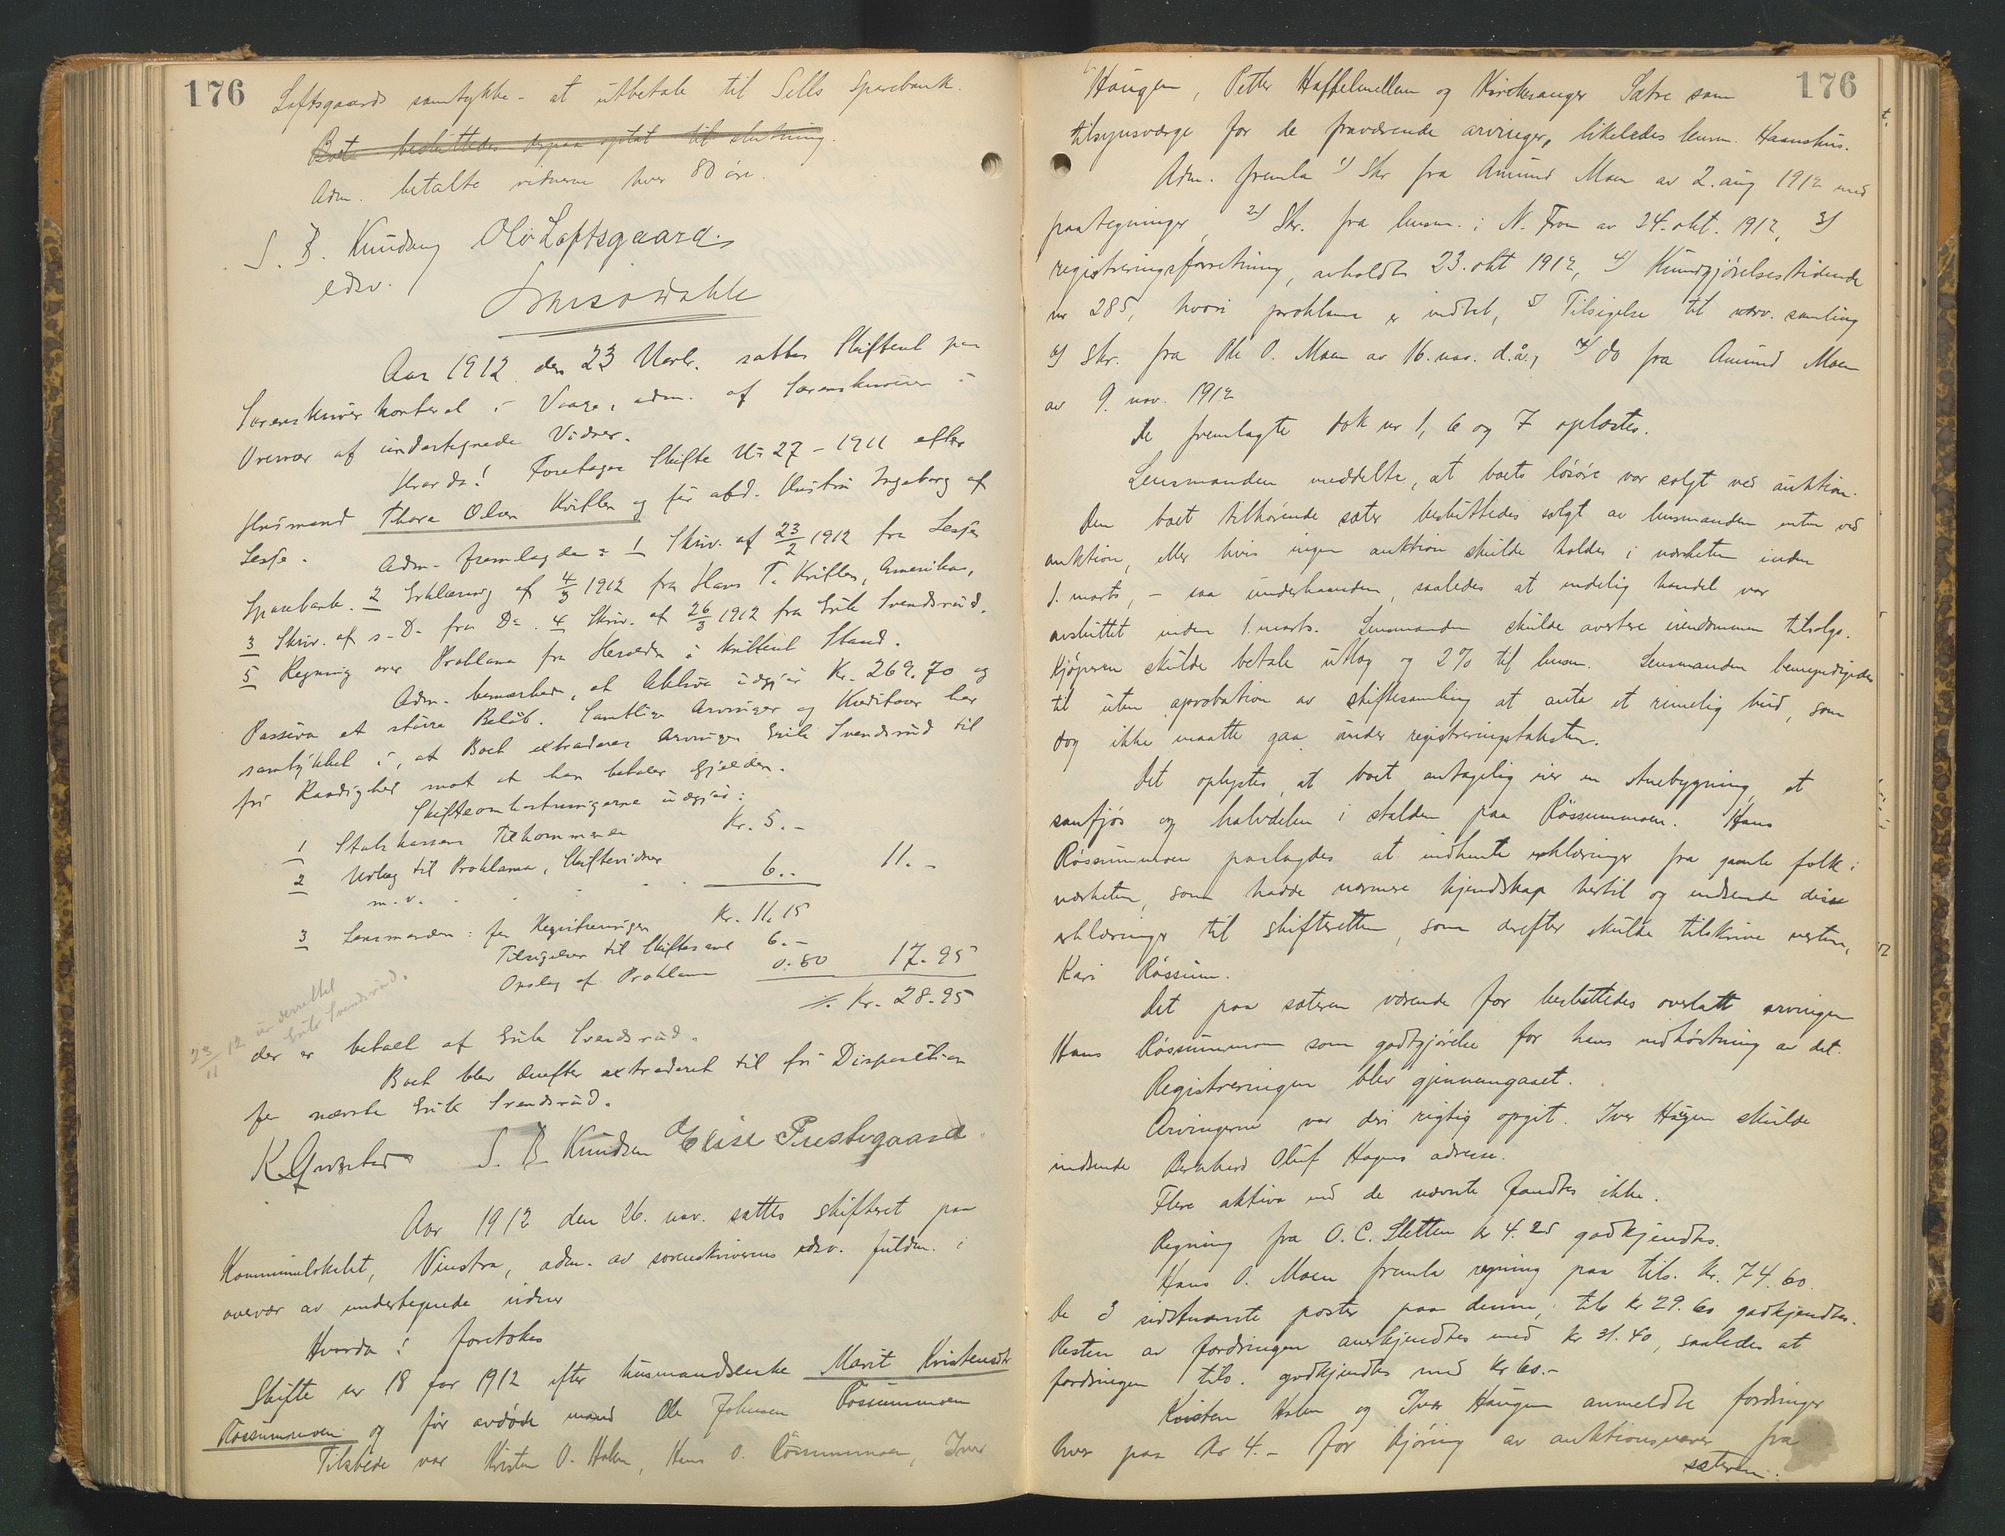 176
Loftsgaards samtykke - at utbetale til Sells Sparebank.
Boet besluttedes  optat til slutning.
Adm. betalte vidnerne hver 80 øre.
S. B. Knudsen Ola Loftsgaard.
edsv.
Aar 1912 den 23 Novbr. sattes Skifteret paa
Sorenskriverkontoret i Vaage, adm. af Sorenskriveren i
Overvær af undertegnede Vidner.
Hvorda! Foretages Skifte No 27 - 1911 efter
Husmand Thore Olsen Kviflen og før afd. Hustru Ingeborg af
Lesje. Adm. fremlagde: 1 Skriv. af 23/2 1912 fra Lesje
Sparebank. 2 Erklæring af 4/3 1912 fra Hans T. Kviflen, Amerika,
3 Skriv. af s. D. fra Do. 4 Skriv. af 26/3 1912 fra Erik Svendsrud.
5 Regning over Proklama fra Herredn i kvitteret Stand.
Adm. bemærked, at Aktiva udgjør Kr. 269.70 og
Passiva et større Beløb. Samtlige Arvinger og Kreditorer har
samtykket i, at Boet extraderes Arvingen Erik Svendsrud til
fri Raadighed mot at han betaler Gjælden.
Skifteomkostningerne udgjør:
1 Statskassens Tilkommende Kr. 5.-
2 Udlæg til Proklama, Skiftevidner
m.v. 6.- 11.-
3 Lensmanden: for Registreringen Kr. 11.15
Tilsigelser til Skiftesaml 6.-
Opslag af Proklama 0.80 17.95
Kr. 28.95
23/11 12 underrettet
Erik Svendsrud.
der er betalt af Erik Svendsrud.
Boet blev derefter extraderet til fri Disposition
for nævnte Erik Svendsrud.
S. B. Knudsen Elise Prestegaard.
Aar 1912 den 26. nov. sattes skifteret paa
Kommunelokalet, Vinstra, adm. av sorenskriverens edsv. fuldm. i
overvær av undertegnede vidner
Hvorda! foretokes
Skifte nr 18 for 1912 efter husmandsenke Marit Kristensdtr
Røssummoen og før avdøde mand Ole Johnsen Røssummoen
Tilstede var Kristen O. Holen, Hans O. Røssummoen, Iver
176
Haugen, Petter Haffelmellem og Kirkesanger Sætre som
tilsynsværge for de fraværende arvinger, likeledes lensm. Haanshus.
Adm. fremla 1) Skr fra Amund Moen av 2. aug 1912 med
paategninger, 2) Skr. fra lensm. i N. Fron av 24. okt. 1912, 3)
registreringsforretning, avholdt 23. okt 1912, 4) Kundgjørelsestidende
nr 285, hvori proklama er indtat, 5) Tilsigelse til  samling
6) Skr. fra Ole O. Moen av 16. nov. d.å., 7) do fra Amund Moen
av 9. nov. 1912
De fremlagte dok nr 1, 6 og 7 oplæstes.
Lensmanden meddelte, at boets løsøre var solgt ved auktion.
Den boet tilhørende sæter besluttedes solgt av lensmanden enten ved
auktion, eller hvis ingen auktion skulde holdes i nærheten inden
1. marts, - saa underhaanden, saaledes at endelig handel var
avsluttet inden 1. marts. Lensmanden skulde avertere eiendommen tilsalgs.
Kjøperen skulde betale utlæg og 2% til lensm. Lensmanden bemyndigedes
til uten aprobation av skiftesamling at anta et rimelig bud, som
dog ikke maatte gaa under registreringstaksten.
Det oplystes, at boet antagelig eier en stuebygning, et
saufjøs og halvdelen i stalden paa Røssummoen. Hans
Røssummoen paalagdes at indhente erklæringer fra gamle folk i
nærheten, som hadde nærmere kjendskap hertil og indsende disse
erklæringer til skifteretten, som derefter skulde tilskrive verten,
Kari Røssum.
Det paa sæteren værende for besluttedes overlatt arvingen
Hans Røssummoen som godtgjørelse for hans indhøstning av det.
Registreringen blev gjennemgaaet.
Arvingerne var der rigtig opgit. Iver Haugen skulde
indsende Bernhard Oluf Hagens adresse.
Flere aktiva end de nævnte fandtes ikke.
Regning fra O. C. Sletten kr 4.25 godkjendtes.
Hans O. Moen fremla regning paa tils. kr. 74.60.
De 3 sidstnævnte poster paa denne, tils kr 29.60 godkjendtes.
Resten av fordringen anerkjendtes med kr 31.40, saaledes at
fordringen tils. godkjendtes med kr 60.-
Kristen Holen og Iver Haugen anmeldte fordringer
hver paa kr 4.- for kjøring av auktionsvarer fra
sæteren.